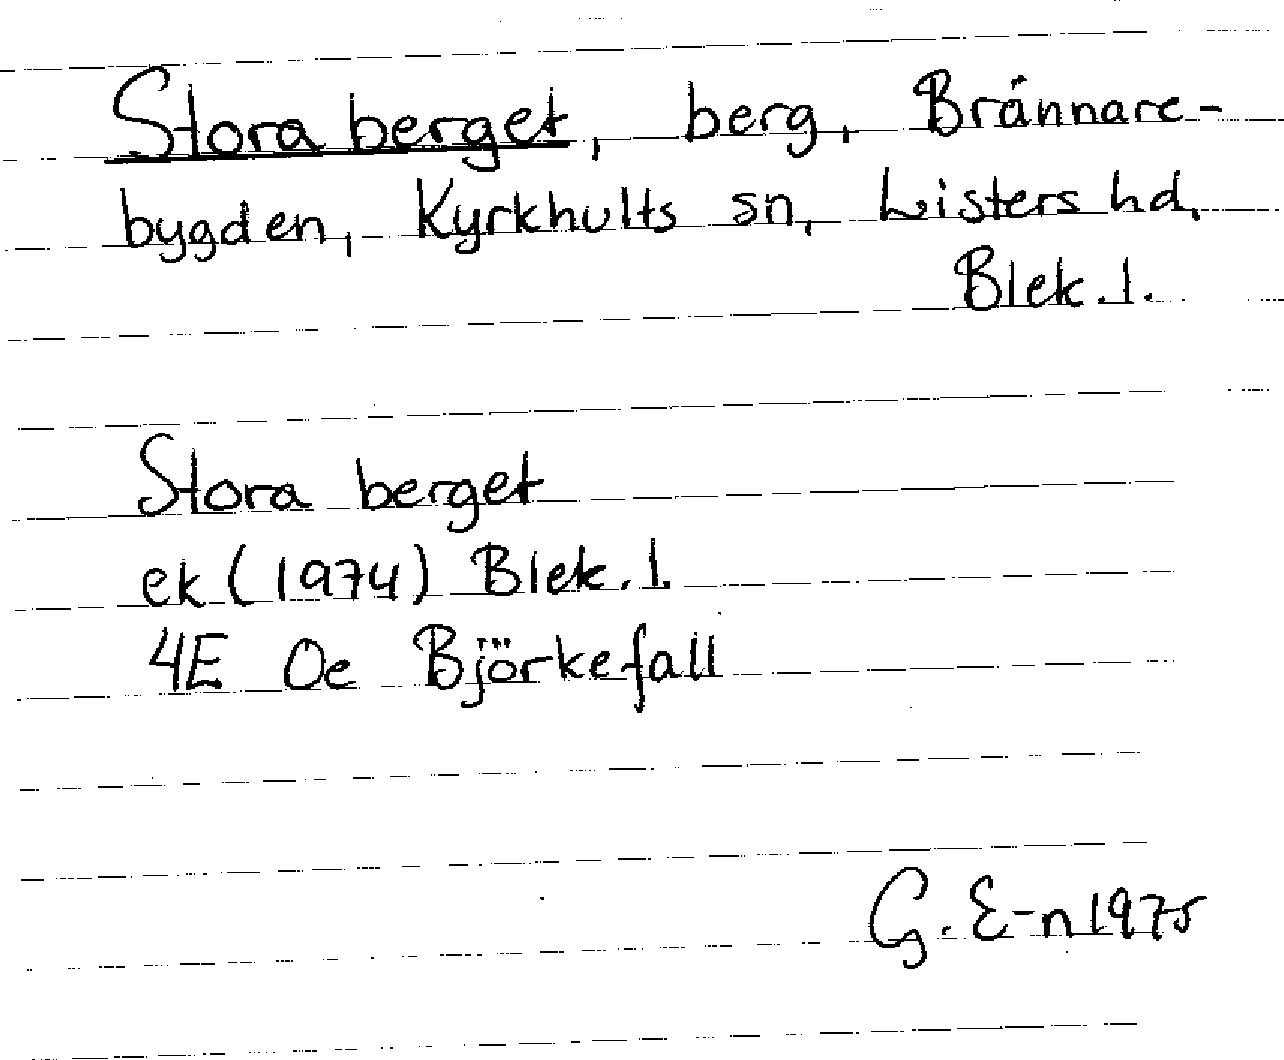 Stora berget, berg, Brännare-
bygden, Kyrkhults sn, Listers hd,
Blek. l.
Stora berget
ek (1974) Blek. l.
4E Oe Björkefall
G. E-n 1975